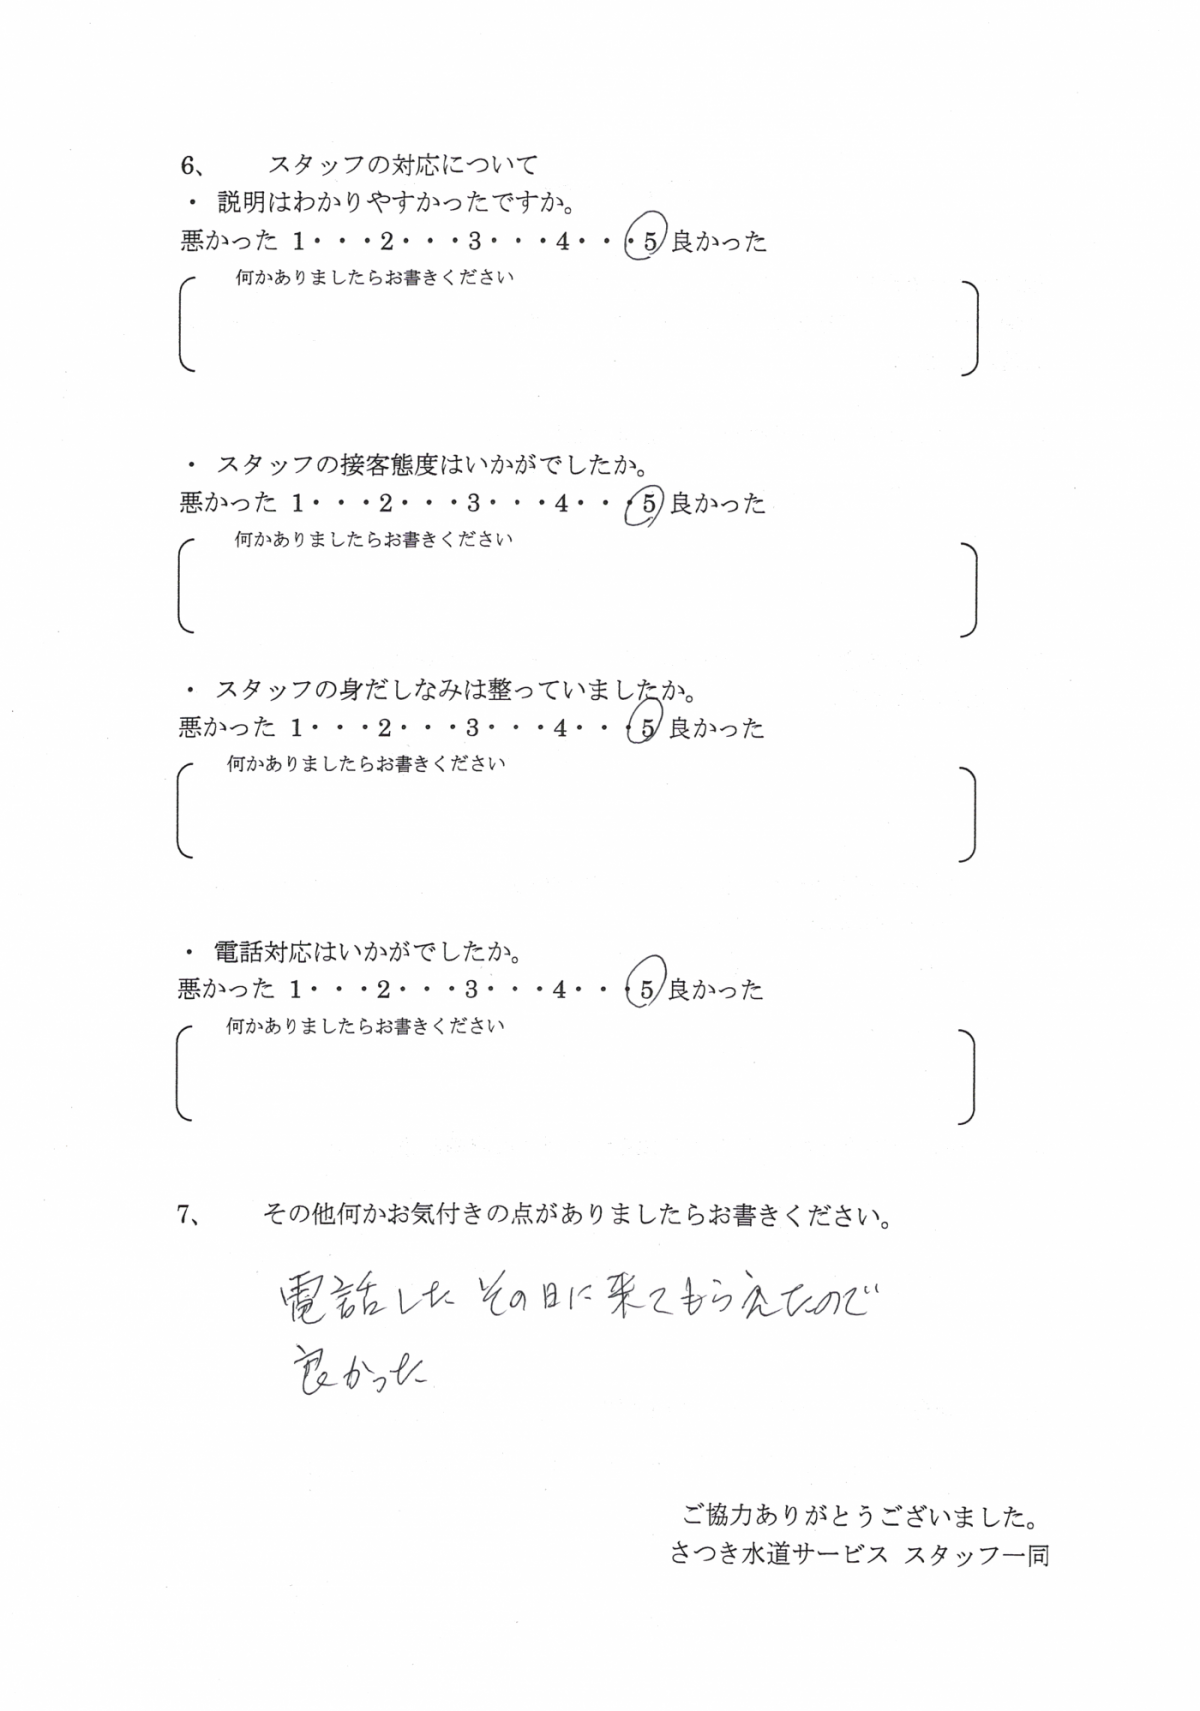 6、　スタッフの対応について
・ 説明はわかりやすかったですか。
悪かった 1・・・2・・・3・・・4・・・5 良かった
何かありましたらお書きください
・ スタッフの接客態度はいかがでしたか。
悪かった 1・・・2・・・3・・・4・・・5 良かった
何かありましたらお書きください
・ スタッフの身だしなみは整っていましたか。
悪かった 1・・・2・・・3・・・4・・・5 良かった
何かありましたらお書きください
・ 電話対応はいかがでしたか。
悪かった 1・・・2・・・3・・・4・・・5 良かった
何かありましたらお書きください
7、　その他何かお気付きの点がありましたらお書きください。
電話した その日に来てもらえたので
良かった
ご協力ありがとうございました。
さつき水道サービス スタッフ一同